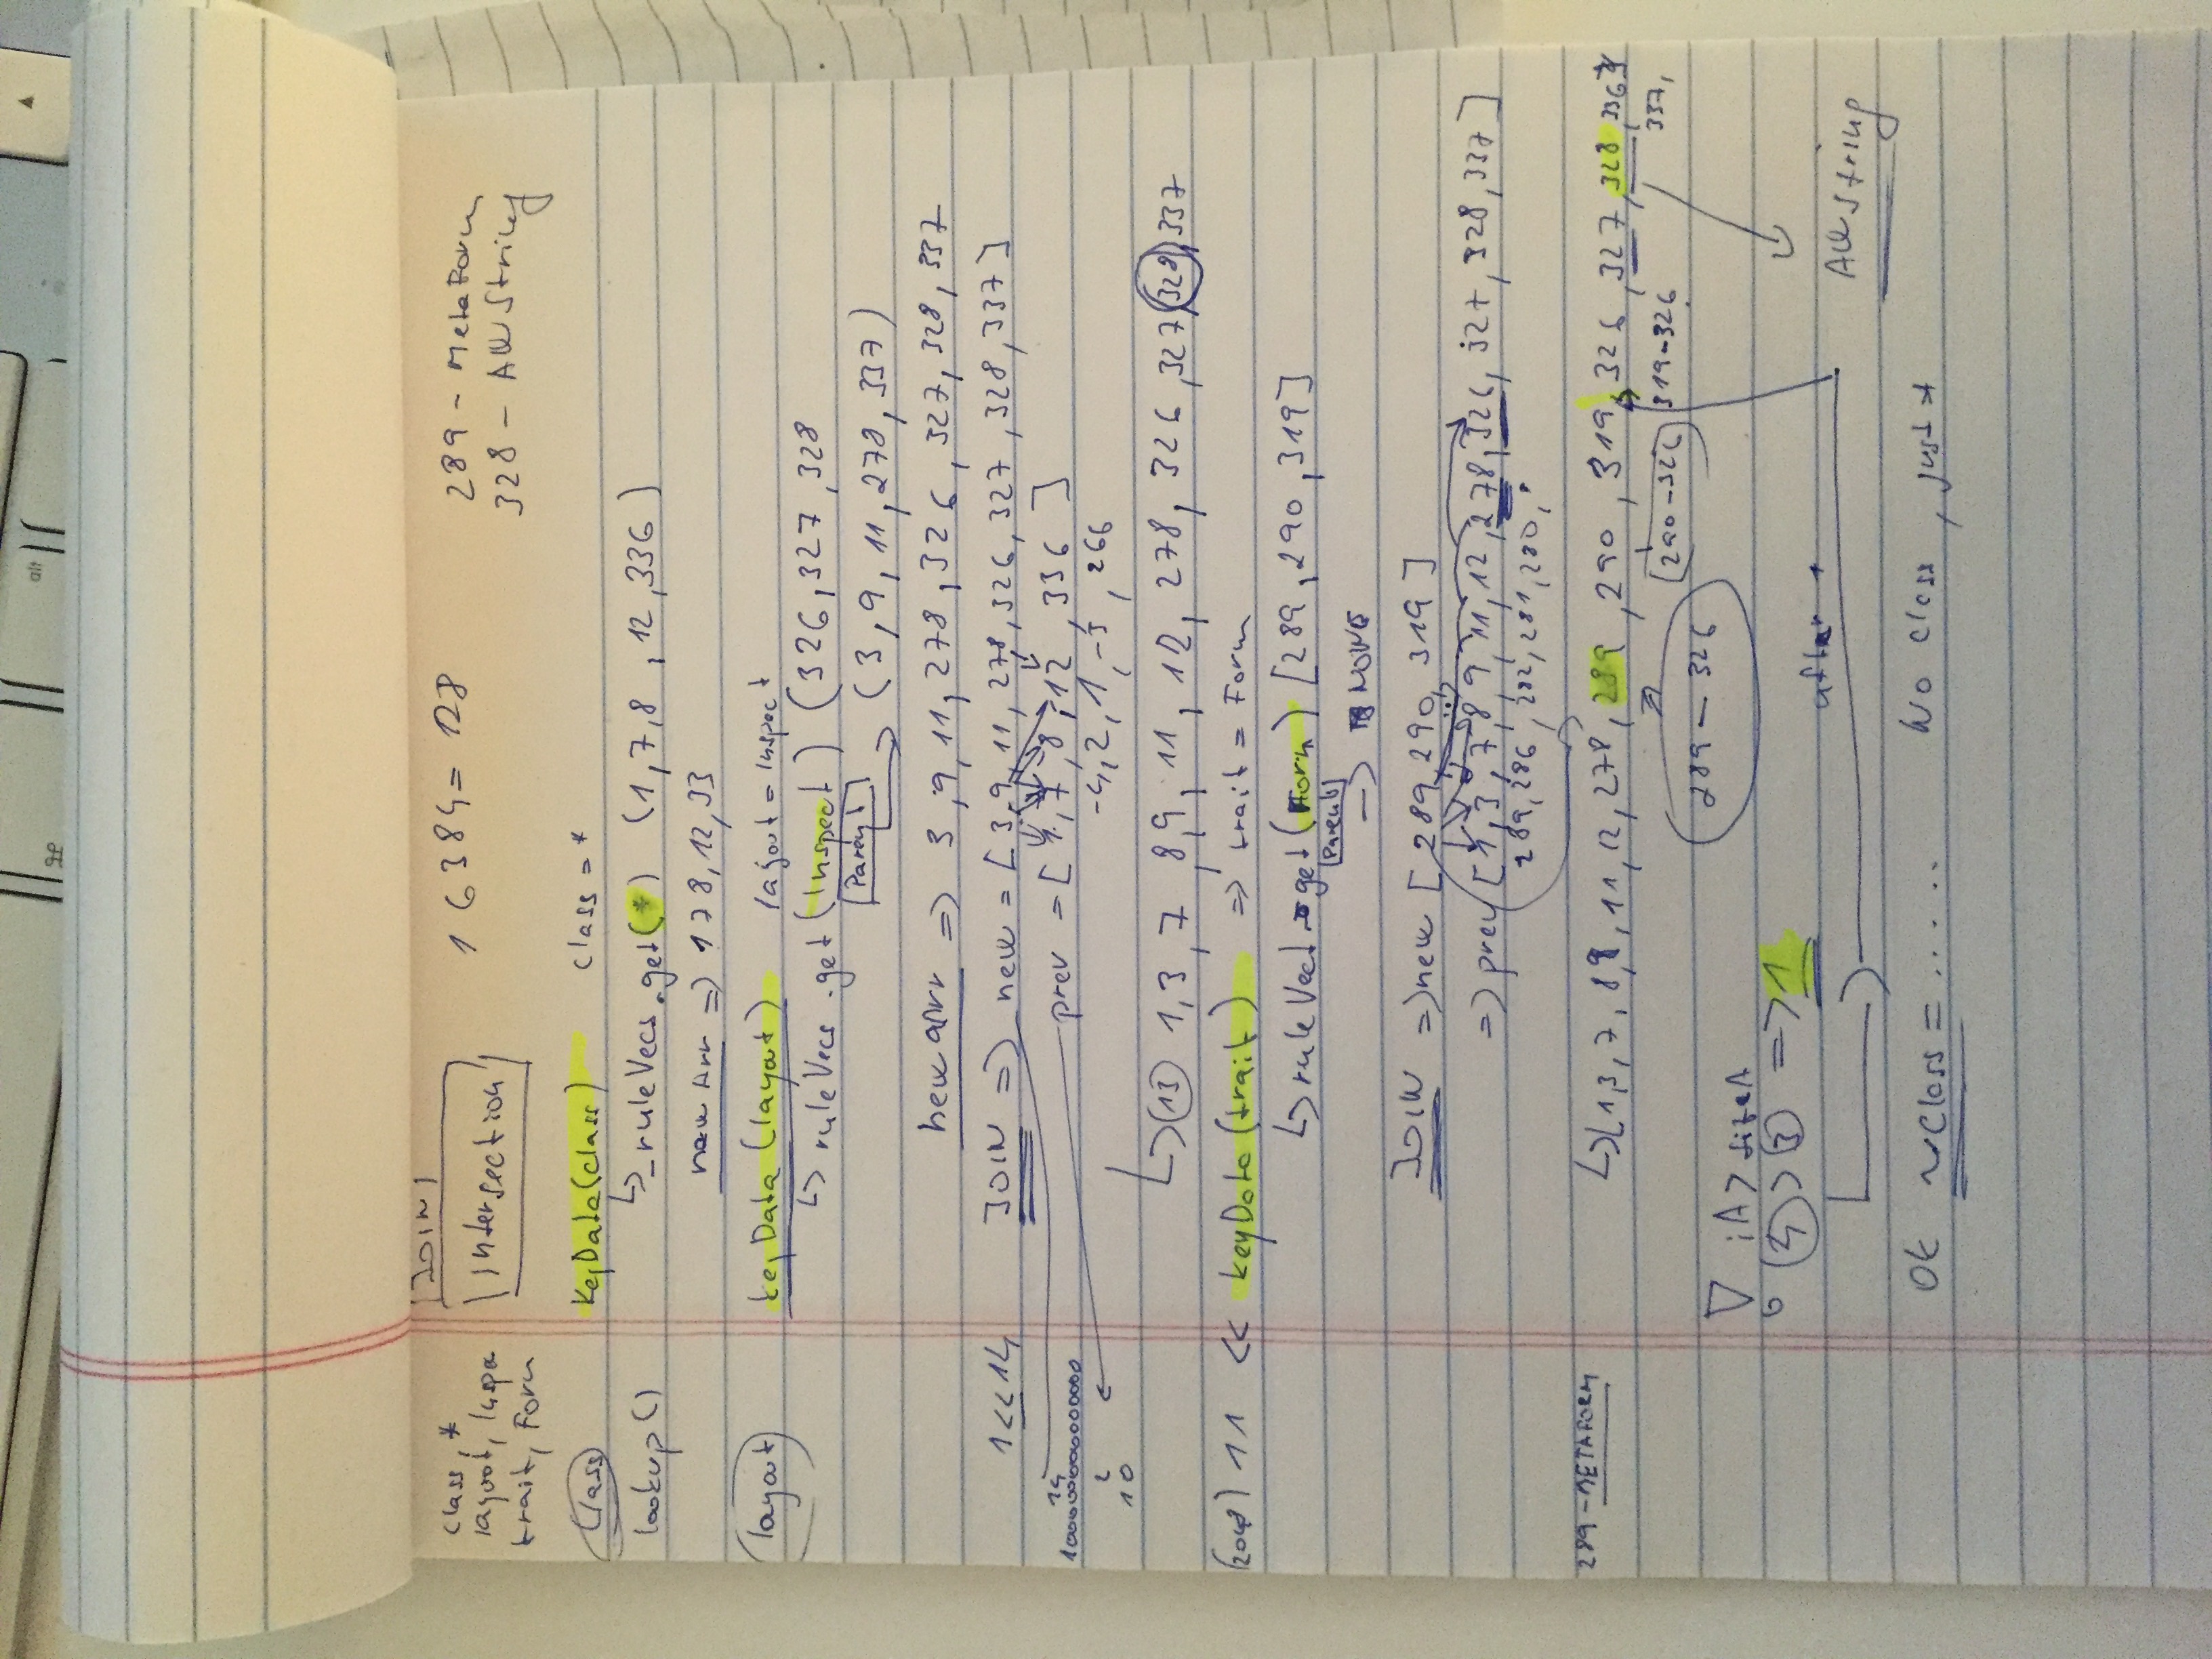 alt
JOIN
class, *
Intersection
16384 = 128
289 - MetaForm
layout, Inspe
328 - AWString
trait, Form
Class
KeyData(class) class = *
lookup()
ruleVecs.get(*) (1,7,8 ,12,336)
new Arr => 178,12,33
layout
keyData (layout) layout = Inspect
ruleVecs.get(Inspect) (326,327,328
Parent
(3,9,11,278,337)
new Arr => 3,9,11,278,326,327,328,337
1<<14
JOIN => new = [3,9,11,278,326,327,328,337]
14
prev = [1,7,8,12,336]
100000000000000
266
10
13 1,3,7,8,9,11,12,278,326,327,328,337
(2048) 11 << keyData(trait) => trait = Form
ruleVect.get(Form) [289,290,319]
[Parent]
-> NONE
JOIN => new [289,290,319]
=> prev [1,3,7,8,9,11,12,278,326,327,328,337]
289,286,282,281,280,
289-METAFORM
[1,3,7,8,9,11,12,278,289,290,319,326,327,328,336
290-326 319-326 337,
289 - 326
iA > sizeA
=> 1
after
AWString
OK ~class = ..... No class, just *